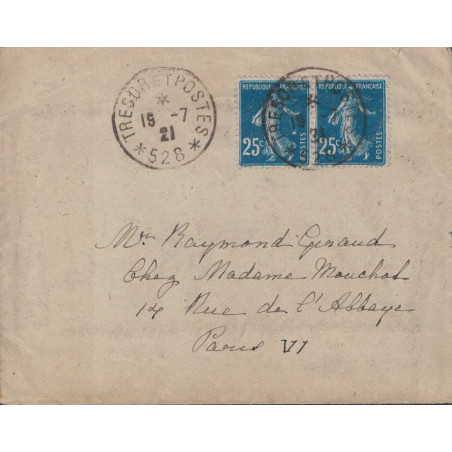 TRESOR ET POSTES
* 15 -7 21 *
528
REPUBLIQUE FRANÇAISE
25c POSTES
REPUBLIQUE FRANÇAISE
25c POSTES
TRESOR ET POSTES
Mr Raymond Geraud
Chez Madame Mouchot
14 Rue de l'Abbaye
Paris VI